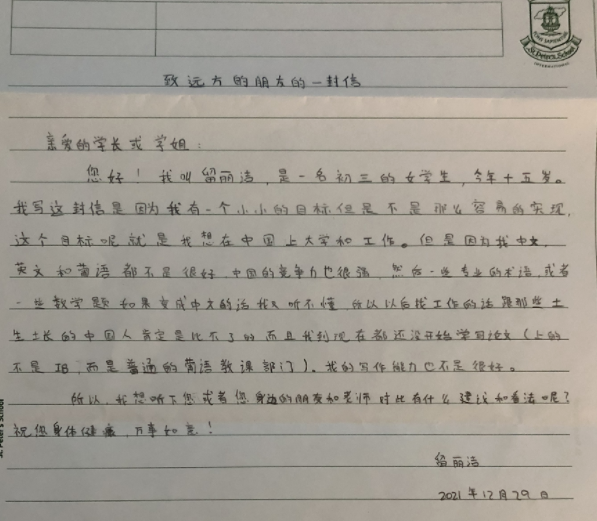 St. Peter's School
致远方的朋友的一封信
亲爱的学长或学姐：
您好！我叫留丽洁，是一名初三的女学生，今年十五岁。
我写这封信是因为我有一个小小的目标但是不是那么容易的实现，
这个目标呢就是我想在中国上大学和工作。但是因为我中文，
英文和葡语都不是很好，中国的竞争力也很强，然后一些专业的术语，或者
一些数学题如果变成中文的话我又听不懂，所以以后找工作的话跟那些土
生土长的中国人肯定是比不了的而且我到现在都还没开始学习论文（上的
不是IB，而是普通的葡语教课部门）。我的写作能力也不是很好。
所以，我想听下您或者您身边的朋友和老师对此有什么建议和看法呢？
祝您身体健康，万事如意！
留丽洁
2021年12月29日
St. Peter's School